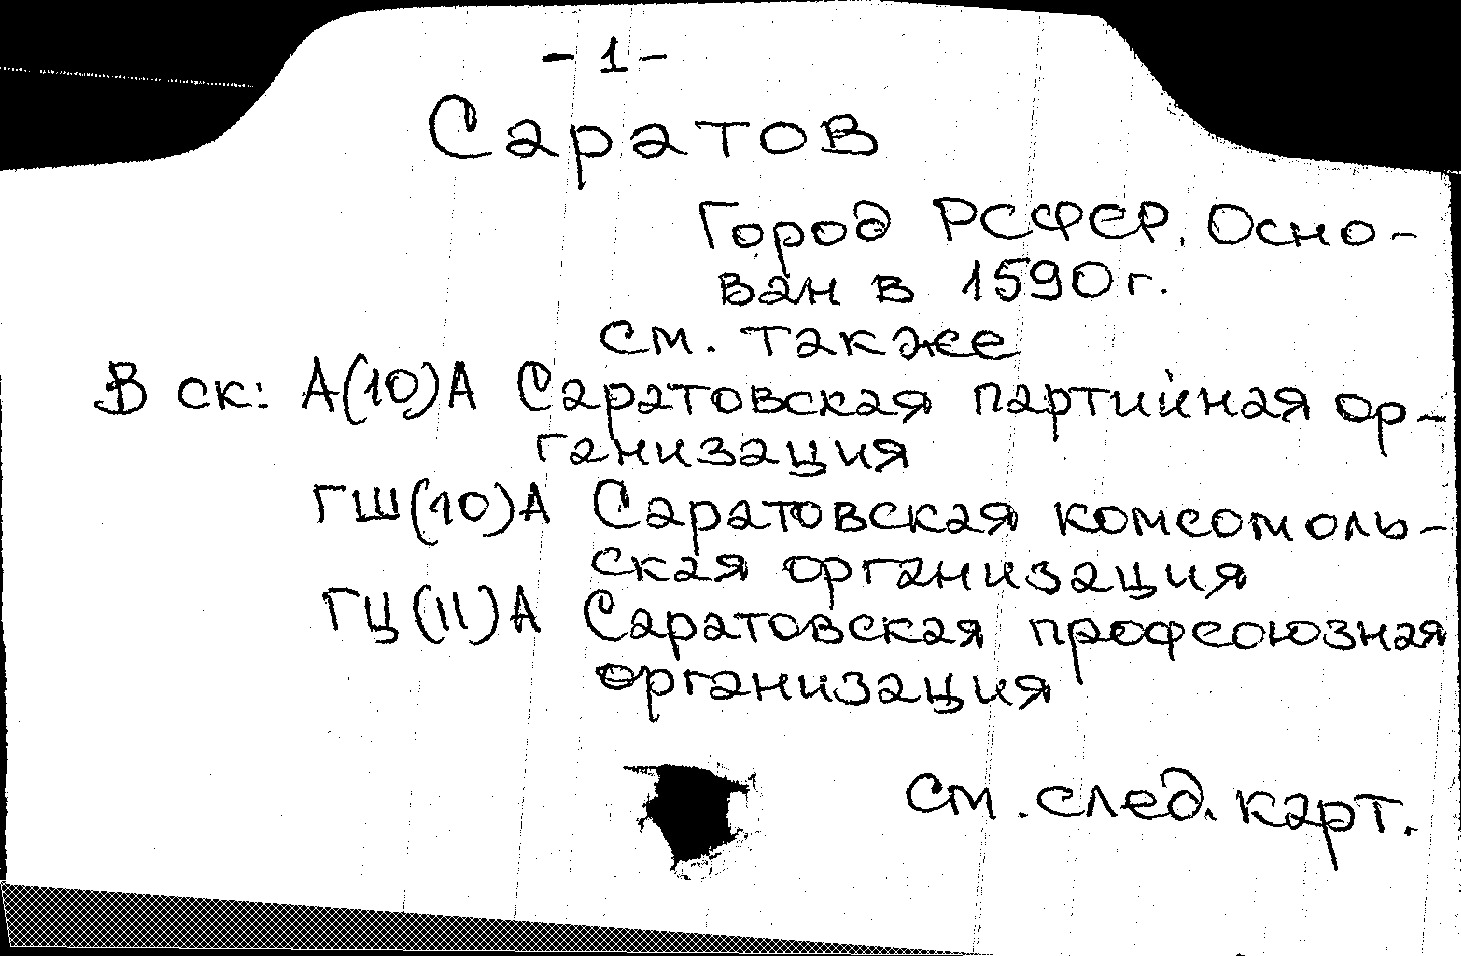 - 1 -
Саратов
Город РСФСР. Осно-
ван в 1590 г.
см. также
В ск: А(10)А Саратовская партийная ор-
ганизация
ГШ(10)А Саратовская комсомоль-
ская организация
ГЦ(11)А Саратовская профсоюзная
организация
см. след. карт.